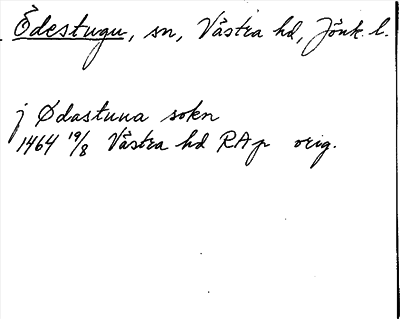 Ödestugu, sn, Västra hd, Jönk. l.
j Ødastuna sokn
1464 19/8 Västra hd RAp orig.